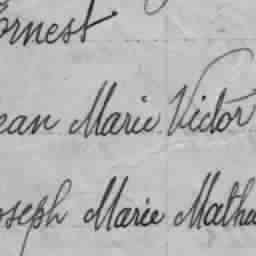 Ernest
ean Marie Victor
oseph Marie Mathu